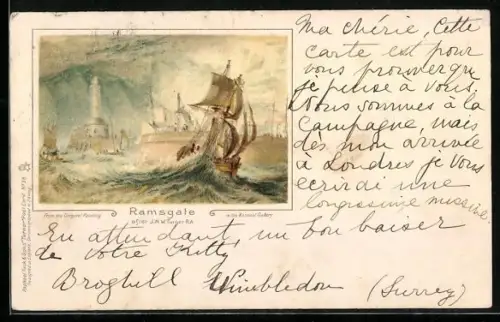 Ma chérie, Cette
carte est pour
vous prouver que
je pense à vous.
Nous sommes à la
Campagne, mais
dès mon arrivée
à Londres je vous
écrirai une
longuissime missive.
From the Original Painting
Ramsgate
after J.M.W. Turner R.A.
in the National Gallery
En attendant, un bon baiser
de votre Kitty
Broghill Wimbledon (Surrey)